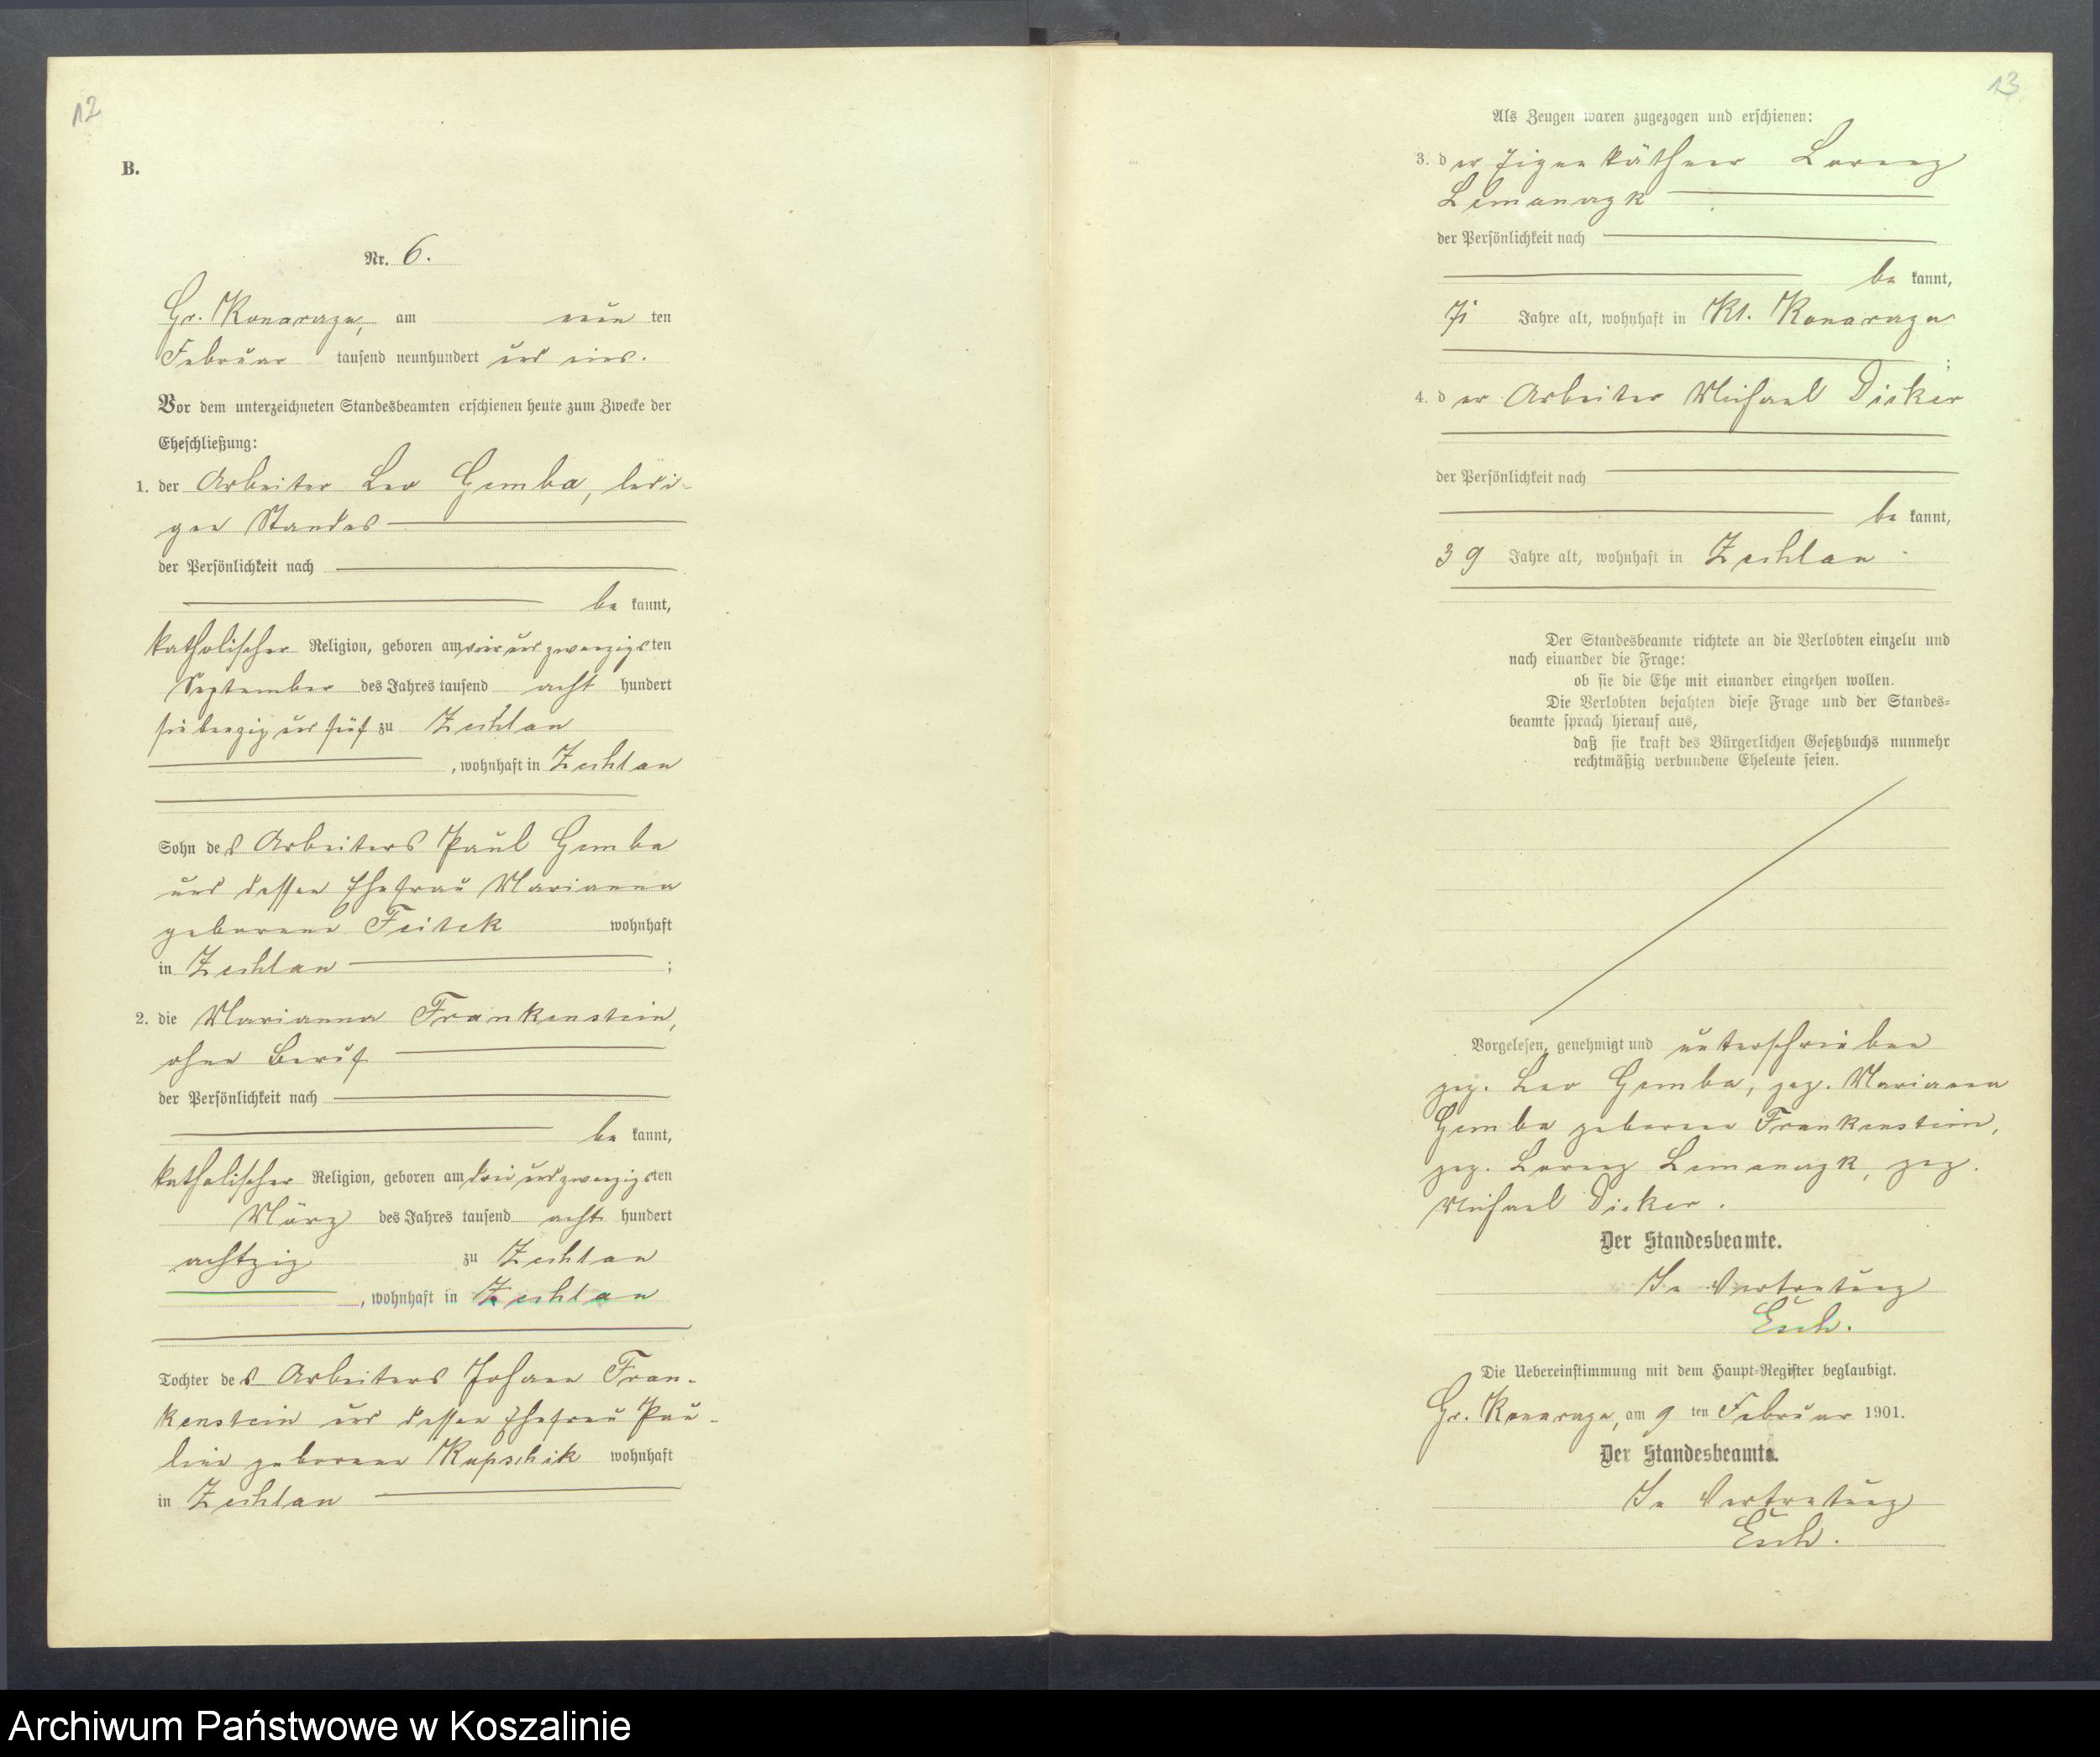 12
B.
Nr. 6.
Gr. Konarczyn, am neun ten
Februar tausend neunhundert und eins.
Vor dem unterzeichneten Standesbeamten erschienen heute zum Zwecke der
Eheschließung:
1. der Arbeiter Leo Gemba, ledi-
gen Standes
der Persönlichkeit nach
be kannt,
katholischer Religion, geboren am vierundzwanzigsten
September des Jahres tausend acht hundert
siebenzig und fünf zu Zechlau
, wohnhaft in Zechlau
Sohn des Arbeiters Paul Gemba
und dessen Ehefrau Marianna
geborene wohnhaft
in Zechlau ;
2. die Marianna Frankenstein,
ohne Beruf
der Persönlichkeit nach
be kannt,
katholischer Religion, geboren am dreiundzwanzigsten
März des Jahres tausend acht hundert
achtzig zu Zechlau
, wohnhaft in Zechlau
Tochter des Arbeiters Johann Fran-
kenstein und dessen Ehefrau Pau-
line geborene Kupschik wohnhaft
in Zechlau
13
Als Zeugen waren zugezogen und erschienen:
3. der Eigenkäthner Lorenz
Lemanczyk
der Persönlichkeit nach
be kannt,
Jahre alt, wohnhaft in Kl. Konarczyn
;
4. der Arbeiter Michael Dicker
der Persönlichkeit nach
be kannt,
39 Jahre alt, wohnhaft in Zechlau.
Der Standesbeamte richtete an die Verlobten einzeln und
nach einander die Frage:
ob sie die Ehe mit einander eingehen wollen.
Die Verlobten bejahten diese Frage und der Standes-
beamte sprach hierauf aus,
daß sie kraft des Bürgerlichen Gesetzbuchs nunmehr
rechtmäßig verbundene Eheleute seien.
Vorgelesen, genehmigt und unterschrieben
gez. Leo Gemba, gez. Mariann
Gemba geborene Frankenstein,
gez. Lorenz Lemanczyk, gez.
Michael Dicker.
Der Standesbeamte.
In Vertretung
Esch.
Die Uebereinstimmung mit dem Haupt-Register beglaubigt.
Gr. Konarczyn, am 9 ten Februar 1901.
Der Standesbeamte.
In Vertretung
Esch.
Archiwum Państwowe w Koszalinie